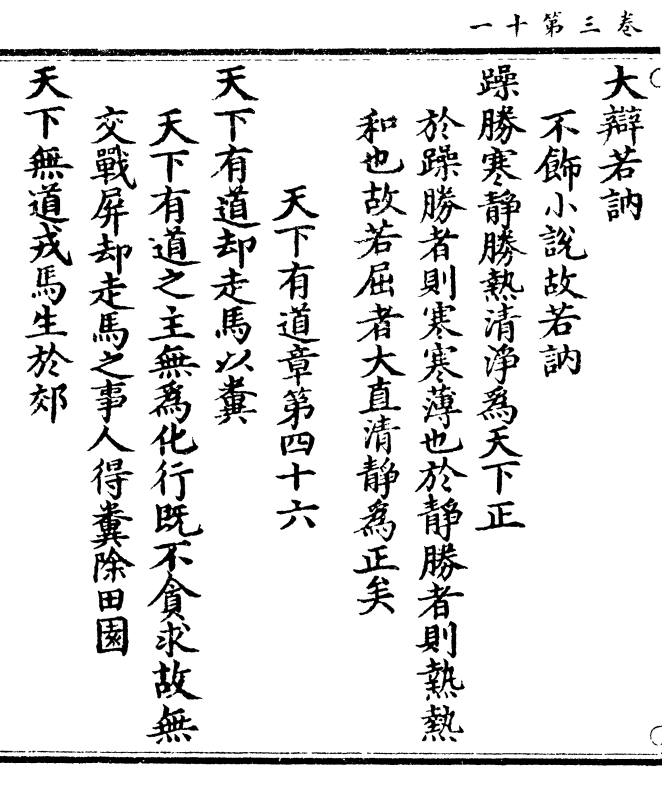 卷三第十一
大辯若訥
不飾小說故若訥
躁勝寒靜勝熱清淨為天下正
於躁勝者則寒寒薄也於靜勝者則熱熱
和也故若屈者大直清靜為正矣
天下有道章第四十六
天下有道却走馬以糞
天下有道之主無為化行既不貪求故無
交戰屏却走馬之事人得糞除田園
天下無道戎馬生於郊